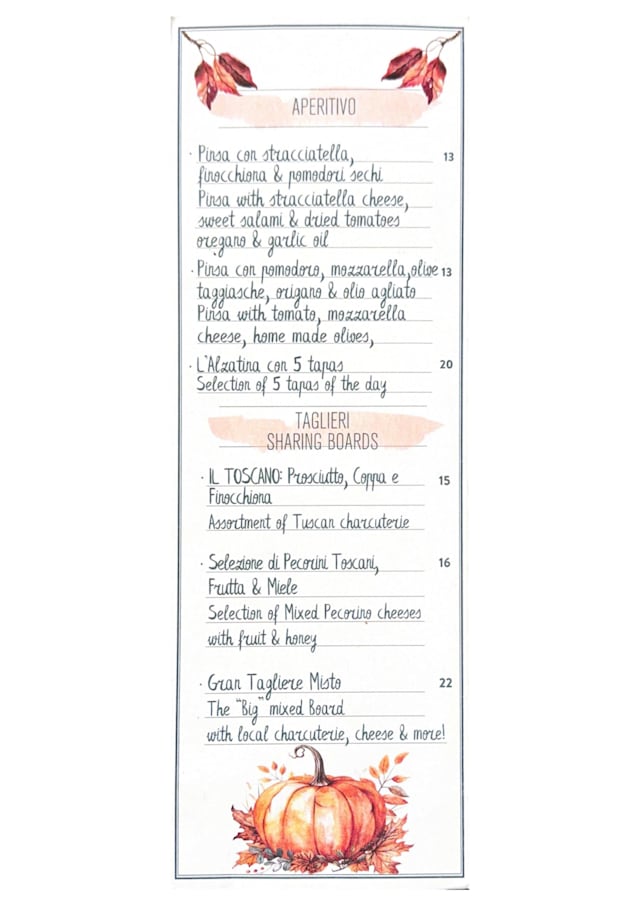 APERITIVO
· Pinsa con stracciatella, 13
finocchiona & pomodori sechi
Pinsa with stracciatella cheese,
sweet salami & dried tomatoes
oregano & garlic oil
· Pinsa con pomodoro, mozzarella, olive 13
taggiasche, origano & olio agliato
Pinsa with tomato, mozzarella
cheese, home made olives,
· L'Alzatina con 5 tapas 20
Selection of 5 tapas of the day
TAGLIERI
SHARING BOARDS
· IL TOSCANO: Prosciutto, Coppa e 15
Finocchiona
Assortment of Tuscan charcuterie
· Selezione di Pecorini Toscani, 16
Frutta & Miele
Selection of Mixed Pecorino cheeses
with fruit & honey
· Gran Tagliere Misto 22
The "Big" mixed Board
with local charcuterie, cheese & more!